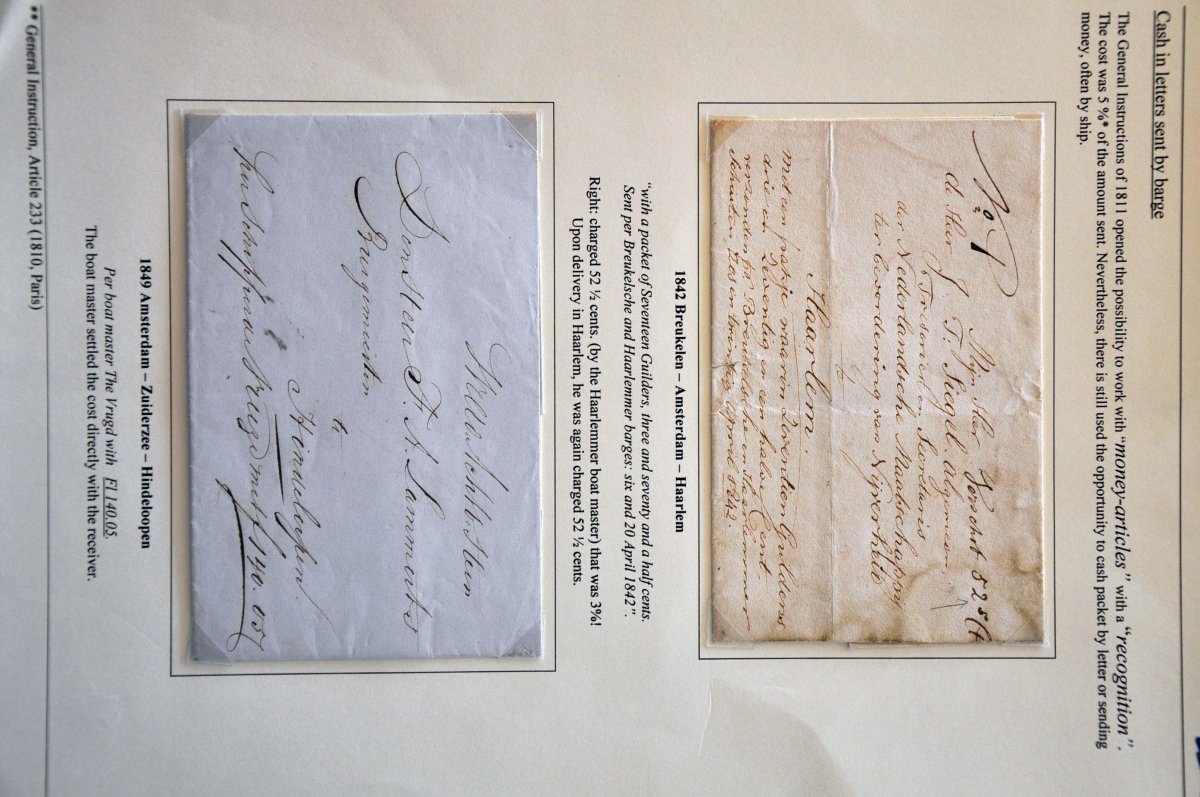 Cash in letters sent by barge
The General Instructions of 1811 opened the possibility to work with “money-articles” with a “recognition”.
The cost was 5 %* of the amount sent. Nevertheless, there is still used the opportunity to cash packet by letter or sending
money, often by ship.
No 1
Mijn Heer
de Heer J. F. Siegel. Algemeen
Thesaurier en Secretaris
der Nederlandsche Maatschappij
ter bevordering van Nijverheid
Haarlem.
met een pakje waarin Zeventien Guldens
drie en Zeventig en een halve Cent.
1842 Breukelen – Amsterdam – Haarlem
“with a packet of Seventeen Guilders, three and seventy and a half cents.
Sent per Breukelsche and Haarlemmer barges: six and 20 April 1842”.
Right: charged 52 ½ cents. (by the Haarlemmer boat master) that was 3%!
Upon delivery in Haarlem, he was again charged 52 ½ cents.
Den Heer
Burgemeester
te
Hindelopen
1849 Amsterdam – Zuiderzee – Hindeloopen
Per boat master The Vrugd with Fl 140.05.
The boat master settled the cost directly with the receiver.
** General Instruction, Article 233 (1810, Paris)